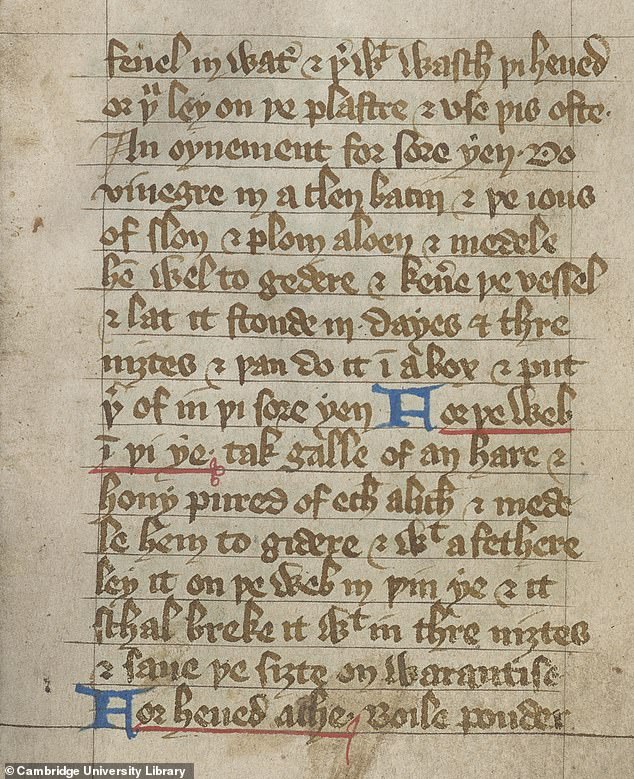 fenel in wat͛ & þ͛ wᵗ wasch þi heued
or þᵘ ley on þe plastre & vse þis ofte·
An oynement for sore yen· Do
vinegre in a clen bacin & þe ious
of slon & plom aloen & medele
hē wel to gedere & keu͛e þe vessel
& lat it stonde in· dayes & thre
niȝtes & þan do it ī a box & put
þ͛ of in þi sore yen For þe web
ī þi ye· tak galle of an hare &
hony pured of ech alich & mede
le hem to gidere & wᵗ a fethere
ley it on þe web in þin ye & it
schal breke it wᵗ in thre niȝtes
& saue þe siȝte on warantise·
For heued ache· Boile pouder
©Cambridge University Library